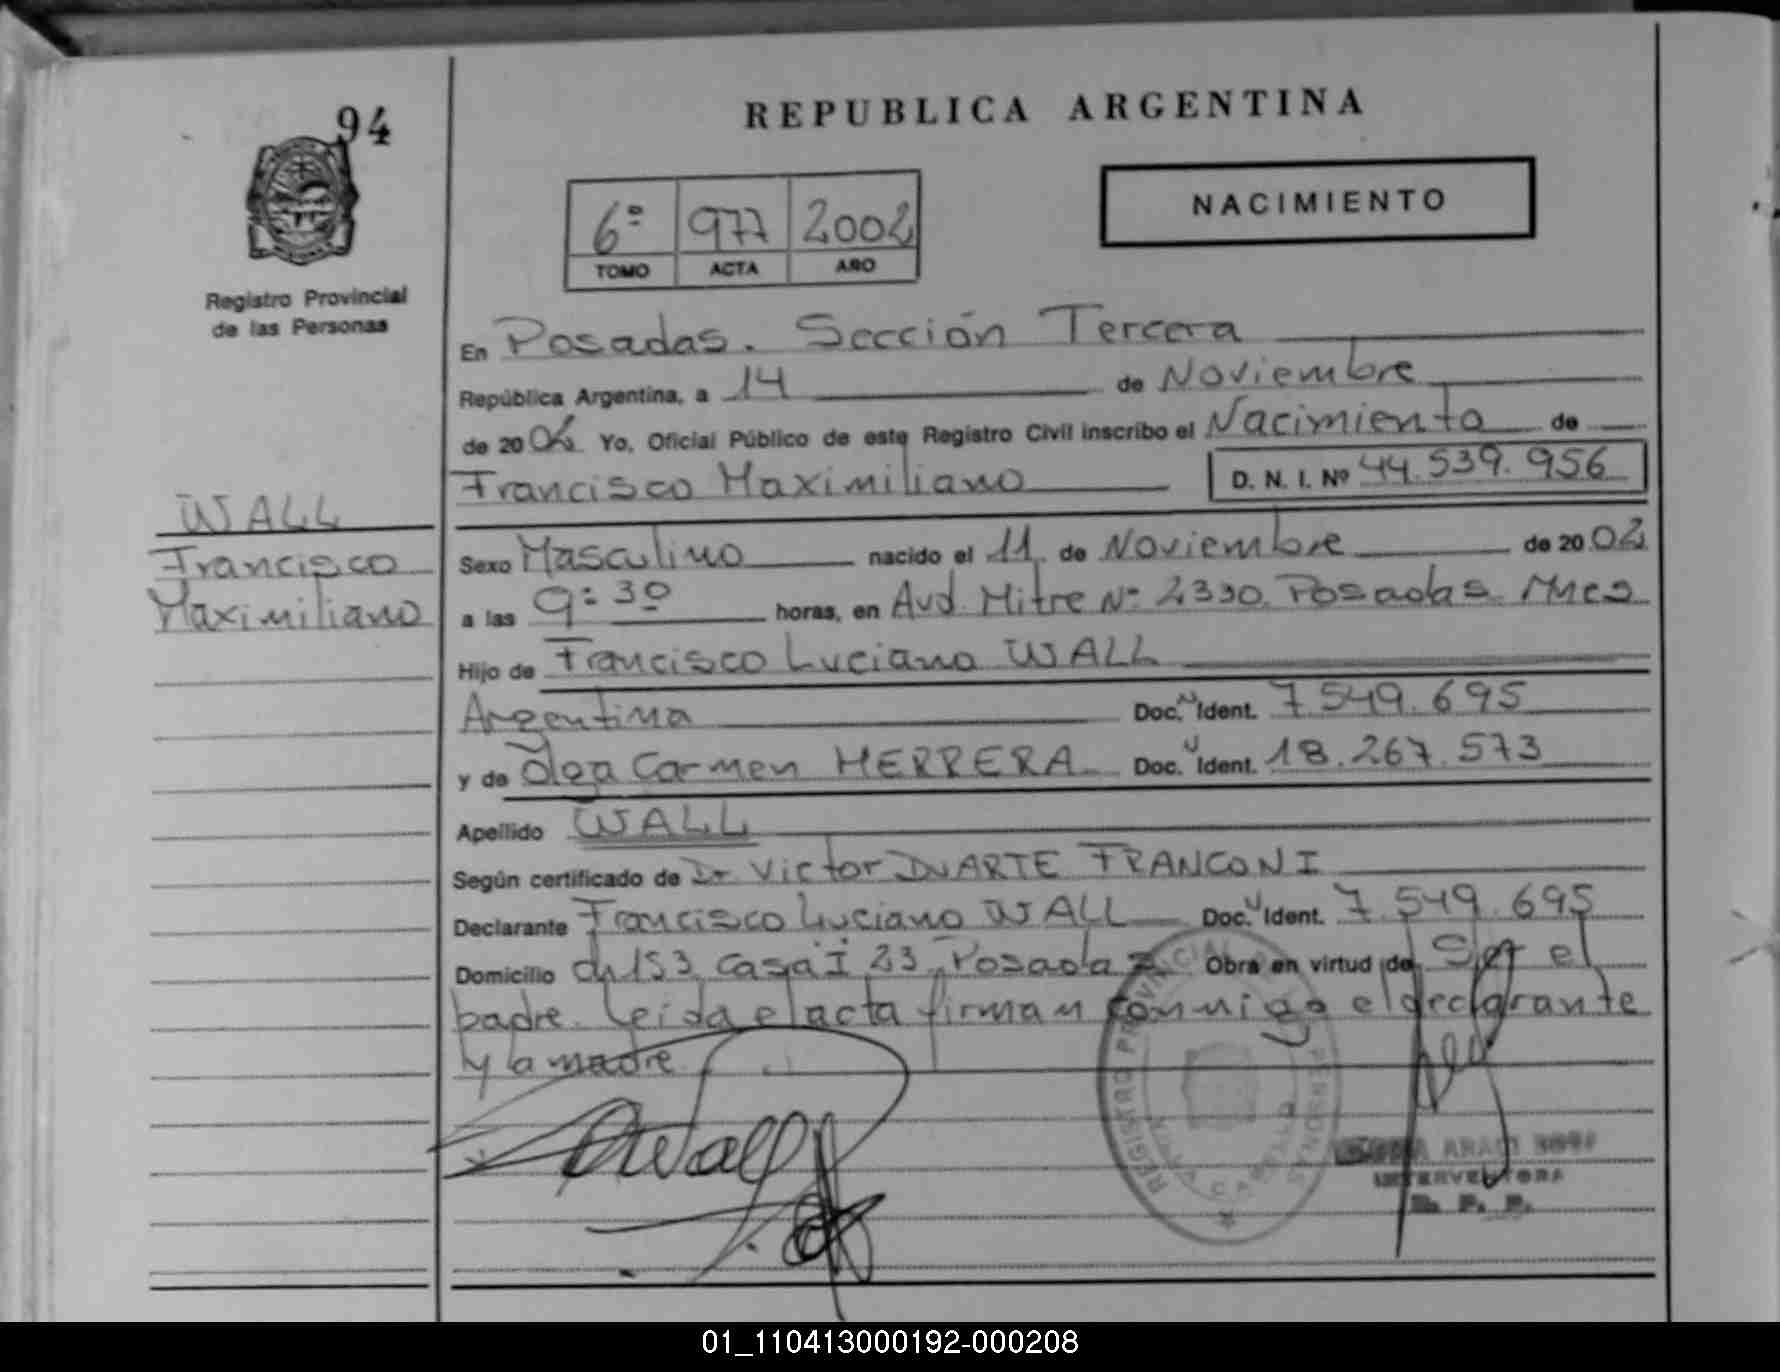 94
REPUBLICA ARGENTINA
NACIMIENTO
6º 977 2002
TOMO ACTA AÑO
Registro Provincial
de las Personas
En Posadas. Sección Tercera
República Argentina, a 14 de Noviembre
de 2002 Yo, Oficial Público de este Registro Civil inscribo el Nacimiento de
Francisco Maximiliano D. N. I. Nº 44.539.956
WALL
Francisco
Maximiliano
Sexo Masculino nacido el 11 de Noviembre de 2002
a las 9:30 horas, en Avd. Mitre Nº 2330 Posadas Mnes
Hijo de Francisco Luciano WALL
Argentina Doc. Ident. 7.549.695
y de Olga Carmen HERRERA Doc. Ident. 18.267.573
Apellido WALL
Según certificado de Dr. Victor DUARTE FRANCONI
Declarante Francisco Luciano WALL Doc. Ident. 7.549.695
Domicilio ch 153 casa I 23 Posadas Obra en virtud de Ser el
padre. Leida el acta firman conmigo el declarante
y la madre.
REGISTRO PROVINCIAL PERSONAS
INTERVENTORA
01_110413000192-000208